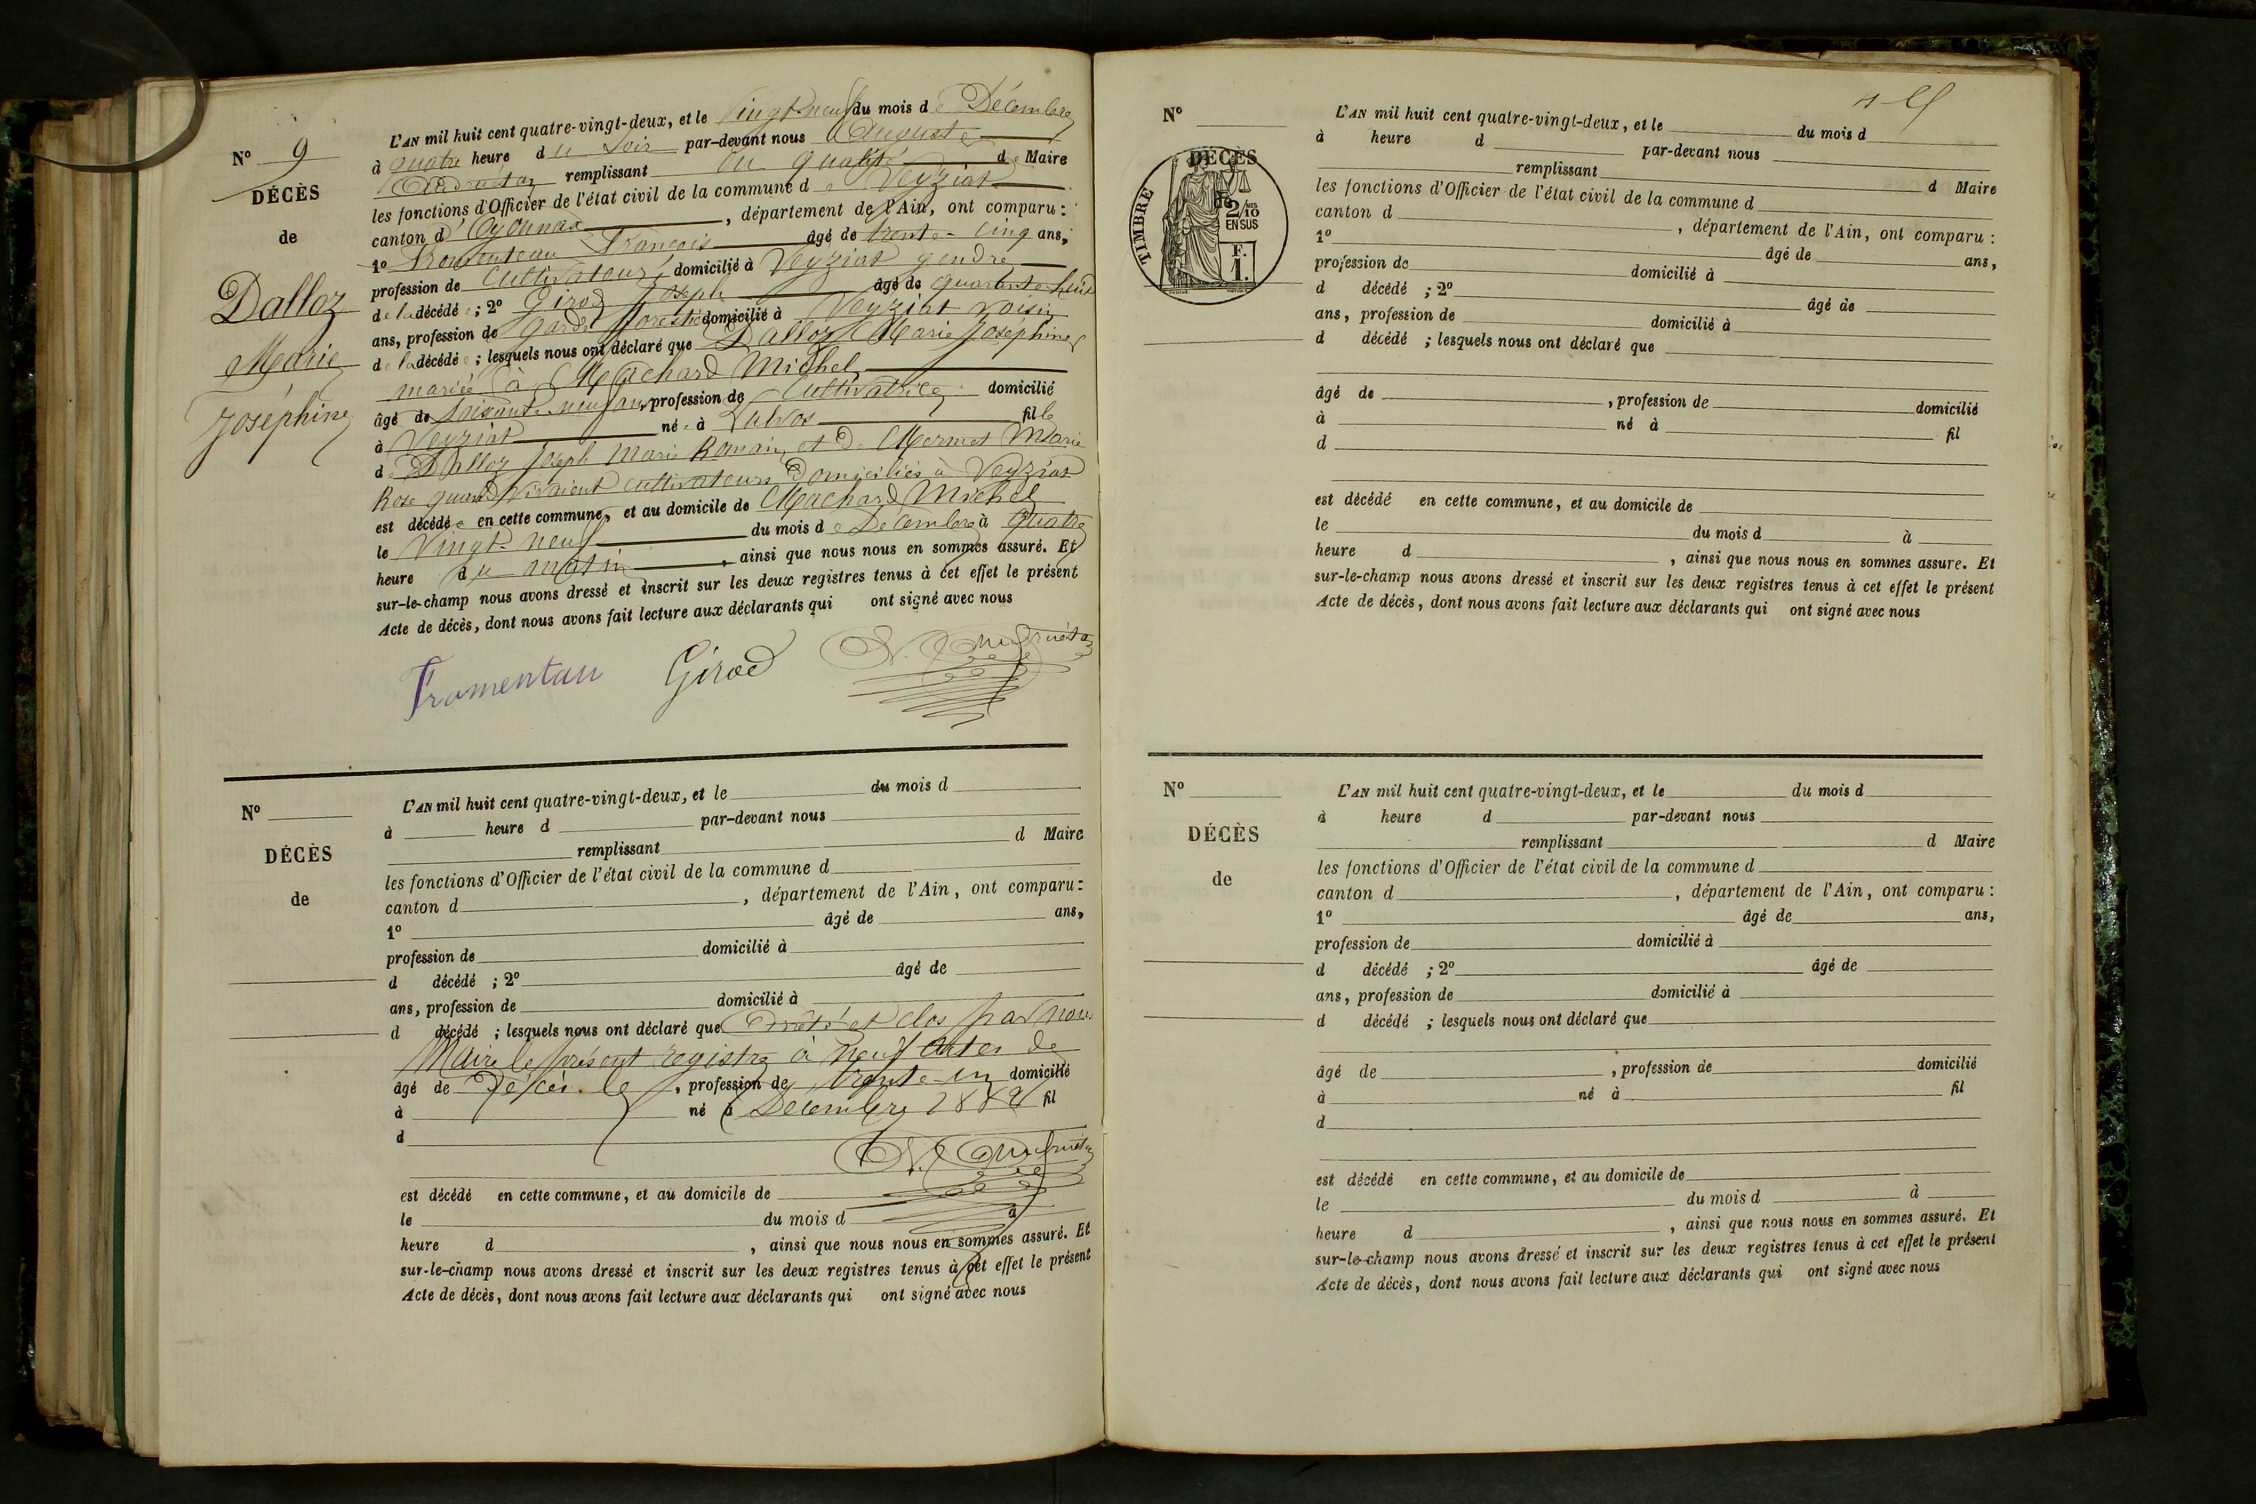 N° 9
DÉCÈS
de
Dalloz
Marie
Joséphine
L'AN mil huit cent quatre-vingt-deux, et le vingt-neuf du mois de Décembre
à quatre heure du soir par-devant nous Auguste
remplissant en qualité de Maire
les fonctions d'Officier de l'état civil de la commune de Veyziat
canton d'Oyonnax, département de l'Ain, ont comparu :
1° Fromenteau François âgé de trente-cinq ans,
profession de Cultivateur, domicilié à Veyziat gendre
de la décédée ; 2° Girod Joseph âgé de quarante-huit
ans, profession de garde forestier domicilié à Veyziat voisin
de la décédée ; lesquels nous ont déclaré que Dalloz Marie Joséphine
mariée à Machard Michel
âgé de soixante-neuf ans, profession de Cultivatrice domicilié
à Veyziat née à fille
de Dalloz Joseph Marie Romain, et de Mermet Marie
Rose quand vivaient cultivateurs domiciliés à Veyziat
est décédée en cette commune, et au domicile de Machard Michel
le Vingt-neuf du mois de Décembre à quatre
heure du matin, ainsi que nous nous en sommes assuré. Et
sur-le-champ nous avons dressé et inscrit sur les deux registres tenus à cet effet le présent
Acte de décès, dont nous avons fait lecture aux déclarants qui ont signé avec nous
Fromentau Girod
N°
DÉCÈS
de
L'AN mil huit cent quatre-vingt-deux, et le du mois d
à heure d par-devant nous
remplissant d Maire
les fonctions d'Officier de l'état civil de la commune d
canton d , département de l'Ain, ont comparu :
1° âgé de ans,
profession de domicilié à
d décédé ; 2° âgé de
ans, profession de domicilié à
d décédé ; lesquels nous ont déclaré que Arrêté et clos par nous
Maire le présent registre à neuf actes de
âgé de Décès le , profession de trente-un domicilié
à né à Décembre 1882 fil
d
est décédé en cette commune, et au domicile de
le du mois d à
heure d , ainsi que nous nous en sommes assuré. Et
sur-le-champ nous avons dressé et inscrit sur les deux registres tenus à cet effet le présent
Acte de décès, dont nous avons fait lecture aux déclarants qui ont signé avec nous
N°
DÉCÈS
TIMBRE
2/10 EN SUS
F. 1.
L'AN mil huit cent quatre-vingt-deux, et le du mois d
à heure d par-devant nous
remplissant d Maire
les fonctions d'Officier de l'état civil de la commune d
canton d , département de l'Ain, ont comparu :
1° âgé de ans,
profession de domicilié à
d décédé ; 2° âgé de
ans, profession de domicilié à
d décédé ; lesquels nous ont déclaré que
âgé de , profession de domicilié
à né à fil
d
est décédé en cette commune, et au domicile de
le du mois d à
heure d , ainsi que nous nous en sommes assuré. Et
sur-le-champ nous avons dressé et inscrit sur les deux registres tenus à cet effet le présent
Acte de décès, dont nous avons fait lecture aux déclarants qui ont signé avec nous
N°
DÉCÈS
de
L'AN mil huit cent quatre-vingt-deux, et le du mois d
à heure d par-devant nous
remplissant d Maire
les fonctions d'Officier de l'état civil de la commune d
canton d , département de l'Ain, ont comparu :
1° âgé de ans,
profession de domicilié à
d décédé ; 2° âgé de
ans, profession de domicilié à
d décédé ; lesquels nous ont déclaré que
âgé de , profession de domicilié
à né à fil
d
est décédé en cette commune, et au domicile de
le du mois d à
heure d , ainsi que nous nous en sommes assuré. Et
sur-le-champ nous avons dressé et inscrit sur les deux registres tenus à cet effet le présent
Acte de décès, dont nous avons fait lecture aux déclarants qui ont signé avec nous